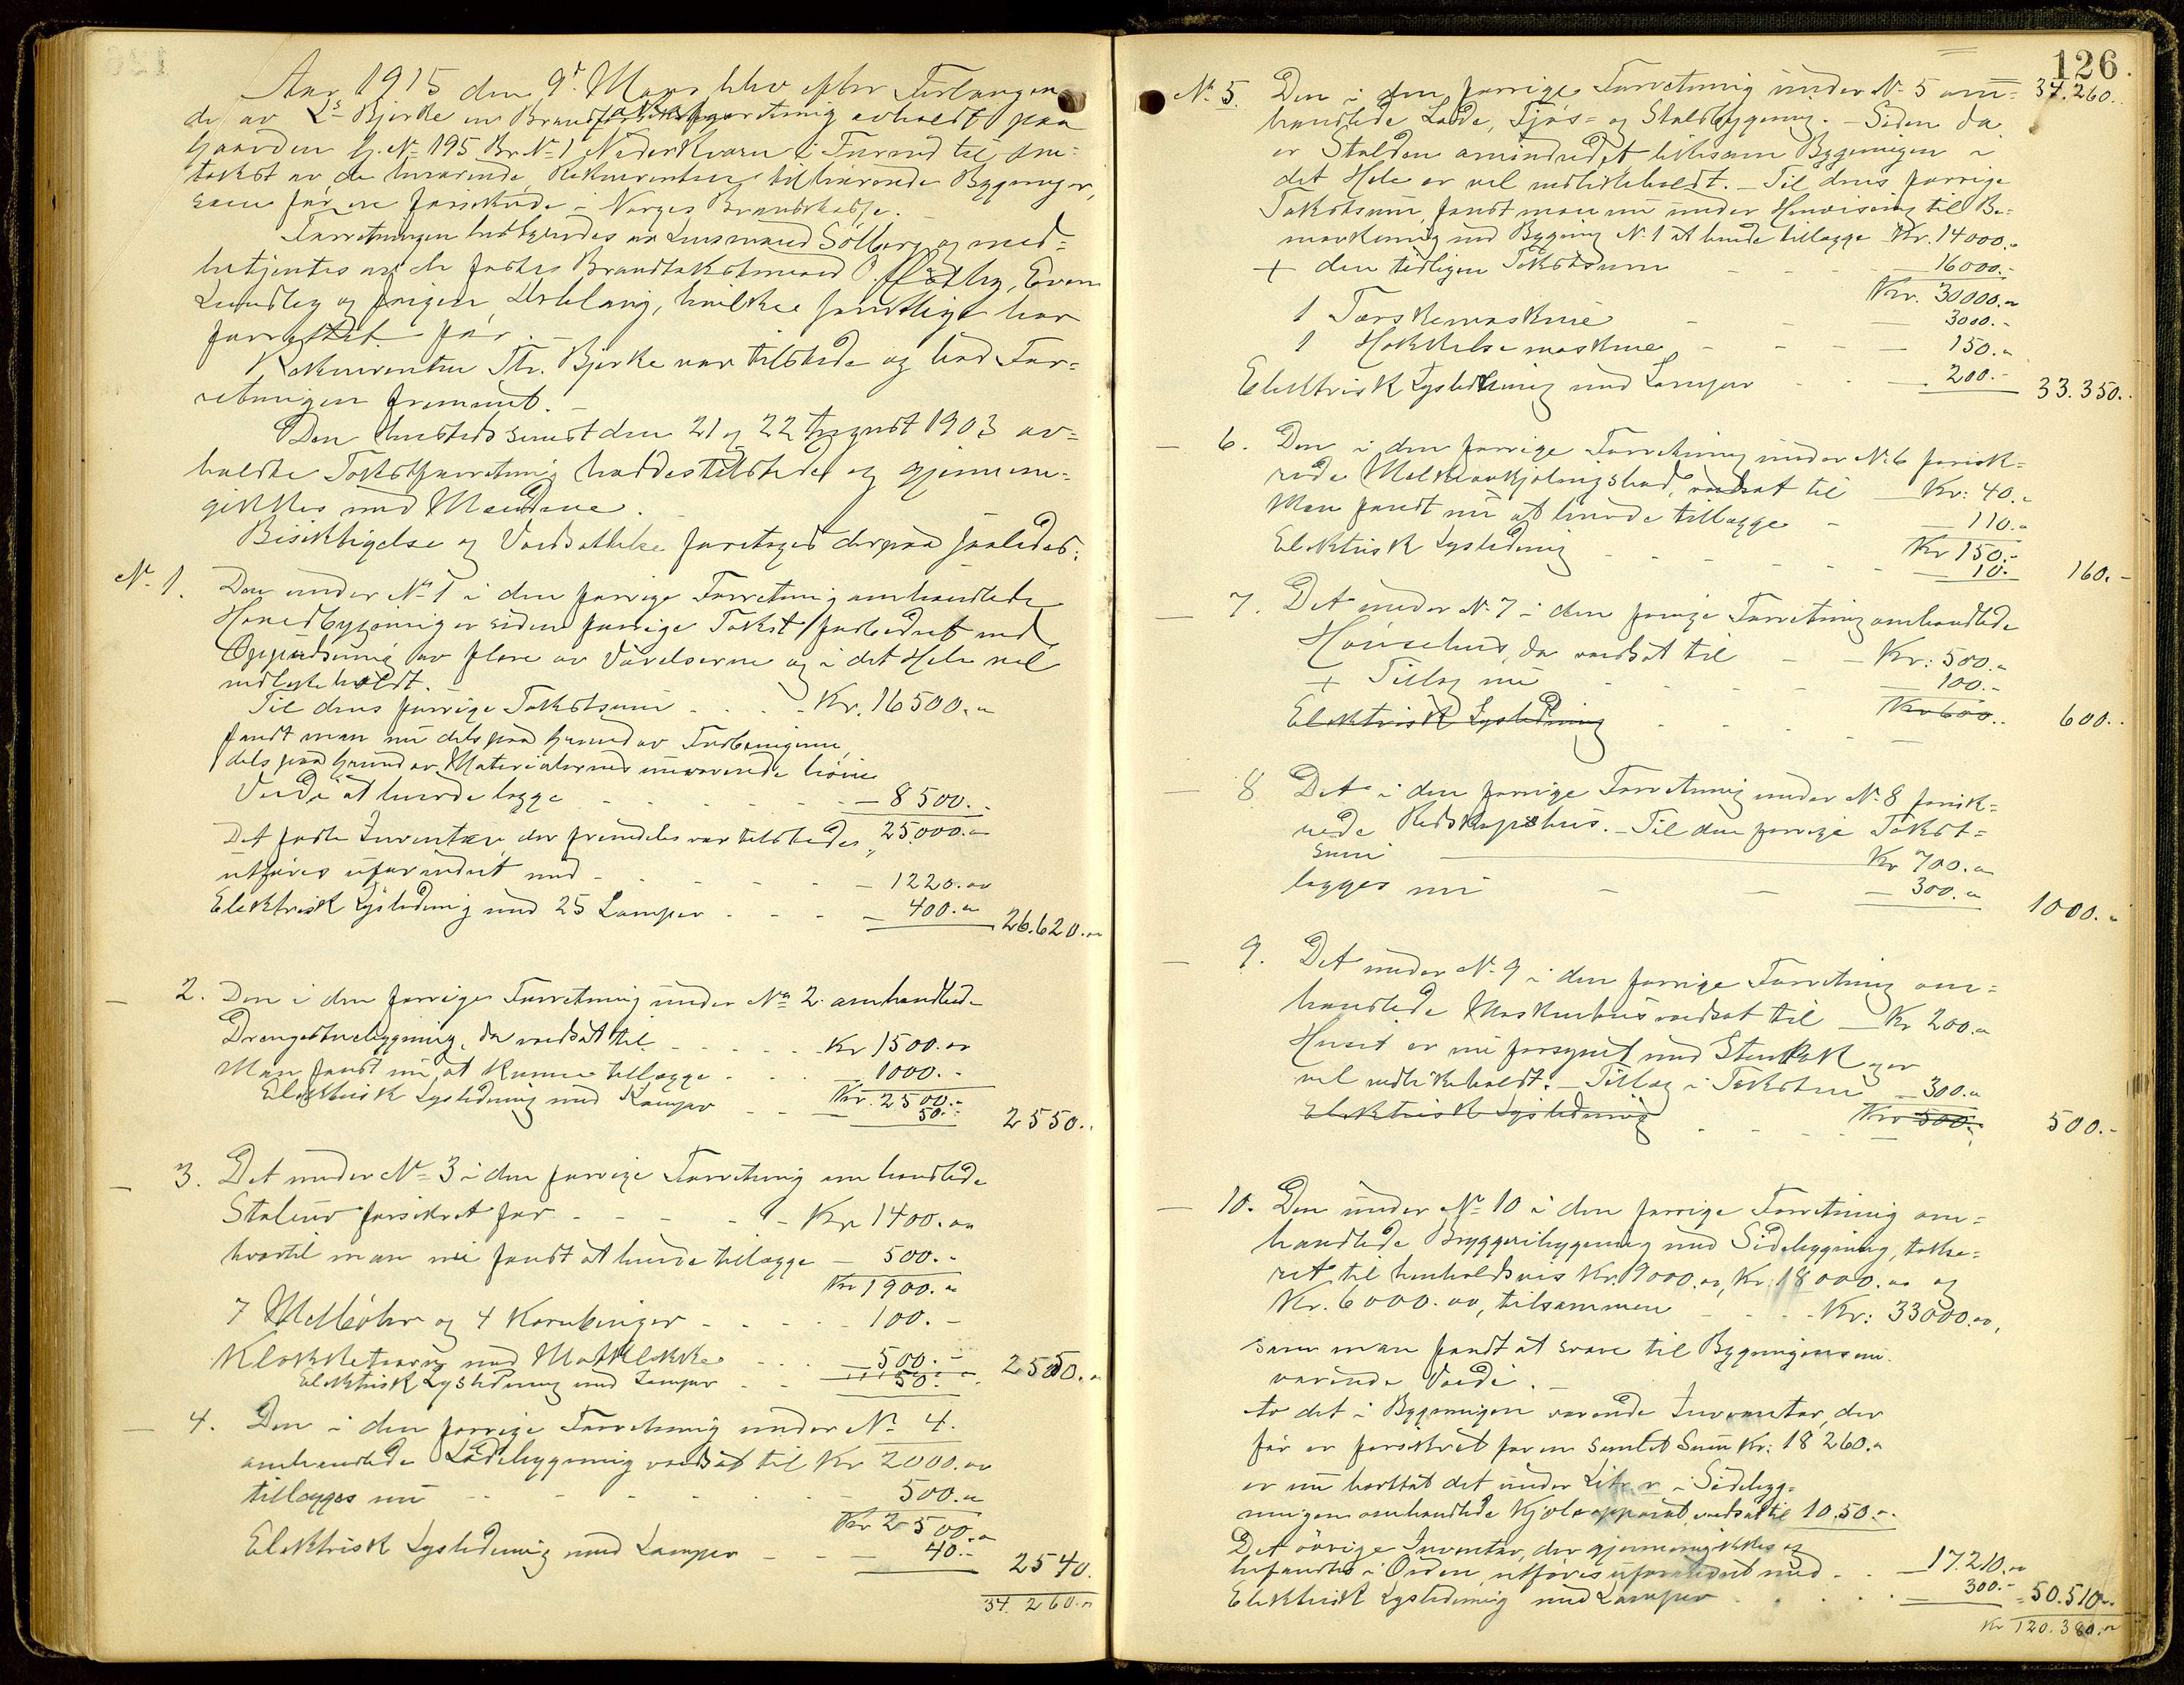 Aar 1915 den 9de Mars blev efter Forlangen
de av Ls Bjerke en Brandtakstforretning avholdt paa
Gaarden G. No 195 Br. No 1 Nederkvern i Furnes til om=
takst av de herværende Rekvirenten tilhørende Bygninger,
som før er forsikrede i Norges Brandkasse.
Forretningen bestyredes av Lensmand Sölberg og med=
betjentes av de faste Brandtakstmænd O. Even
Lundby og har
forrettet før.
Rekvirenten Th. Bjerke var tilstede og bad For=
retningen fremmet.
Den herstedes senest den 21 og 22 August 1903 av=
holdte Takstforretning haddes tilstede og gjennem=
gikkes med Mændene.
Besiktigelse og Værdsættelse foretoges derpaa saaledes:
No. 1. Den under No 1 i den forrige Forretning omhandlede
Hovedbygning er siden forrige Takst forbedret ved
Oppudsning av flere av Værelserne og i det Hele vel
vedlikeholdt.
Til dens forrige Takstsum - - - Kr. 16500.00
fandt man nu dels paa Grund av Forbedringerne,
dels paa Grund av Materialernes nuværende høie
Værdi at burde lægge - - - 8500.-
25.000.00
Det faste Inventar, der fremdeles var tilstede,
utføres uforandret med - - - 1220.00
Elektrisk Lysledning med 25 Lamper - - - 400.00 26.620.00
— 2. Den i den forrige Forretning under No 2 omhandlede
Drengestuebygning, da værdsat til - - - Kr 1500.00
Man fandt nu at kunne tillægge - - - 1000.-
Kr. 2500.-
Elektrisk Lysledning med Lamper - - - 50.- 2550.-
— 3. Det under No 3 i den forrige Forretning omhandlede
Stabur forsikret for - - - Kr 1400.00
hvortil man nu fandt at burde tillægge — 500.-
Kr 1900.00
7 Melbøler og 4 Kornbinger - - - 100.-
Klokketaarn med Matklokke - - - 500.- 2550.-
Elektrisk Lysledning med Lamper - - 50.-
— 4. Den i den forrige Forretning under No 4.
omhandlede Ladebygning værdsat til Kr 2000.00
tillægges nu - - - 500.00
Kr 2500.00
Elektrisk Lysledning med Lamper - - - 40.- 2540.
34.260.00
126.
No. 5. Den i den forrige Forretning under No 5 om= 34.260.
handlede Lade, Fjøs= og Staldbygning. - Siden da
er Stalden omindredet likesom Bygningen i
det Hele er vel vedlikeholdt. - Til dens forrige
Takstsum fandt man nu under Henvisning til Be=
merkning ved Bygning No. 1 at burde tillægge Kr. 14000.-
+ den tidligere Takstsum - - - 16000.-
Kr. 30000.00
1 Tærskemaskine - - - 3000.-
1 Hakkelsemaskine - - - 150.00
Elektrisk Lysledning med Lamper - - - 200.- 33.350.-
— 6. Den i den forrige Forretning under No 6 forsik=
rede Melkeavkjølingsbod, værdsat til — Kr: 40.-
Man fandt nu at burde tillægge - — 110.00
Kr 150.-
Elektrisk Lysledning - - - 10.- 160.-
— 7. Det under No. 7 i den forrige Forretning omhandlede
Hønsehus, da værdsat til - - Kr: 500.00
+ Tillæg nu - - - 100.-
Elektrisk Lysledning - - - Kr 600.. 600..
— 8 Det i den forrige Forretning under No 8 forsik=
rede Redskapshus. - Til den forrige Takst=
sum — Kr 700.00
lægges nu - - — 300.00 1000.-
— 9. Det under No. 9 i den forrige Forretning om=
handlede Maskinhus værdsat til — Kr 200.00
Huset er nu forsynet med Stentak og er
vel vedlikeholdt. - Tillæg i Taksten — 300.00
Elektrisk Lysledning - - - Kr 500.- 500.-
— 10. Den under No 10 i den forrige Forretning om=
handlede Bryggeribygning med Sidebygning, takse=
ret til henholdsvis Kr. 9000.00, Kr. 18000.00 og
Kr. 6000.00, tilsammen - - - Kr: 33000.00,
som man fandt at svare til Bygningens nu=
værende Værdi.
Av det i Bygningen værende Inventar, der
før er forsikret for en samlet Sum Kr: 18260.00
er nu borttat det under Litr. v i Sidebyg=
ningen omhandlede Kjøleapparat, værdsat til 10.50.-.
Det øvrige Inventar, der gjennemgikkes og
befandtes i Orden utføres uforandret med - - 17.210.00
Elektrisk Lysledning med Lamper - - - 300.- 50.510.-
Kr 120.380.00